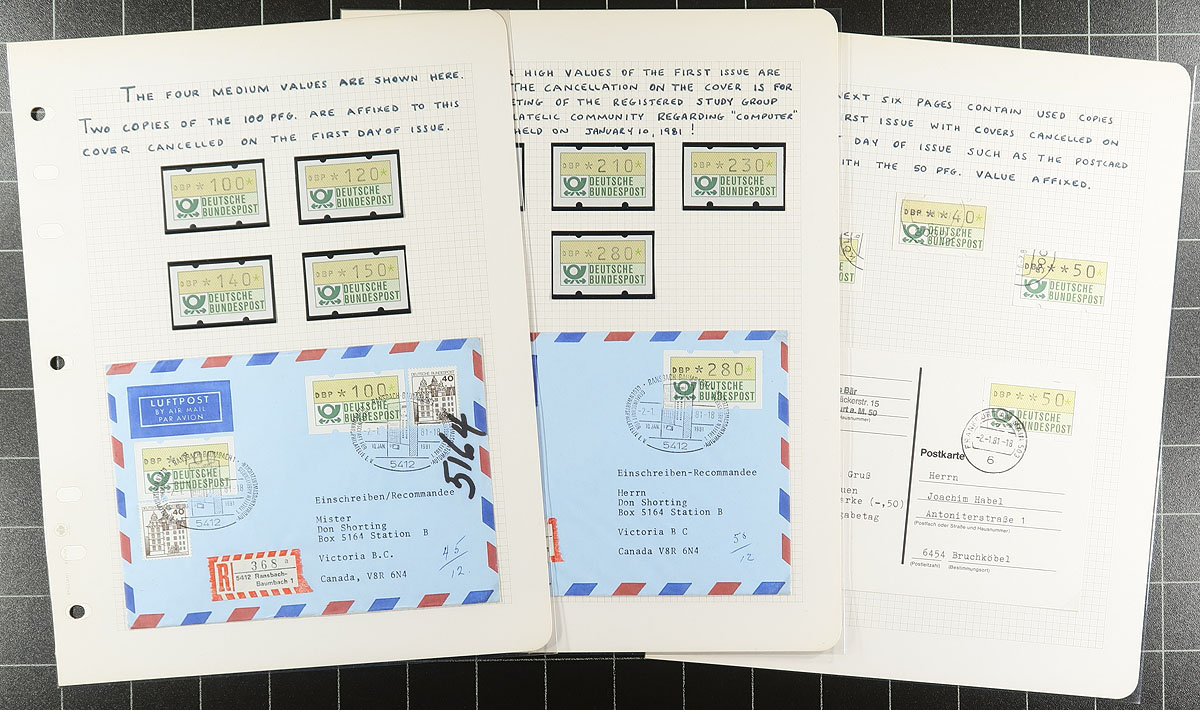 THE FOUR MEDIUM VALUES ARE SHOWN HERE.
TWO COPIES OF THE 100 PFG. ARE AFFIXED TO THIS
COVER CANCELLED ON THE FIRST DAY OF ISSUE.
DBP *100*
DEUTSCHE
BUNDESPOST
DBP *120*
DEUTSCHE
BUNDESPOST
DBP *140*
DEUTSCHE
BUNDESPOST
DBP *150*
DEUTSCHE
BUNDESPOST
LUFTPOST
BY AIR MAIL
PAR AVION
DBP *100*
DEUTSCHE
BUNDESPOST
DEUTSCHE BUNDESPOST
40
81-18
10.JAN
1981
5412
5164
DBP
DEUTSCHE
BUNDESPOST
5412
40
Einschreiben/Recommandee
Mister
Don Shorting
Box 5164 Station B
Victoria B.C.
Canada, V8R 6N4
45/12.
R
368 a
5412 Ransbach-
Baumbach 1
HIGH VALUES OF THE FIRST ISSUE ARE
THE CANCELLATION ON THE COVER IS FOR
TING OF THE REGISTERED STUDY GROUP
LATELIC COMMUNITY REGARDING "COMPUTER"
HELD ON JANUARY 10, 1981!
DBP *210*
DEUTSCHE
BUNDESPOST
DBP *230*
DEUTSCHE
BUNDESPOST
DBP *280*
DEUTSCHE
BUNDESPOST
DBP *280*
DEUTSCHE
BUNDESPOST
81-18
10.JAN
1981
5412
Einschreiben-Recommandee
Herrn
Don Shorting
Box 5164 Station B
Victoria B C
Canada V8R 6N4
58/12
NEXT SIX PAGES CONTAIN USED COPIES
IRST ISSUE WITH COVERS CANCELLED ON
DAY OF ISSUE SUCH AS THE POSTCARD
ITH THE 50 PFG. VALUE AFFIXED.
DBP **40*
DEUTSCHE
BUNDESPOST
DBP **50*
DEUTSCHE
BUNDESPOST
Bär
ückerstr. 15
urt a.M. 50
Hausnummer)
DBP **50*
DEUTSCHE
BUNDESPOST
-2-1.81-18
6
Postkarte
Gruß
uen
erke (-,50)
gabetag
Herrn
Joachim Habel
Antoniterstraße 1
(Postfach oder Straße und Hausnummer)
6454 Bruchköbel
(Postleitzahl) (Bestimmungsort)